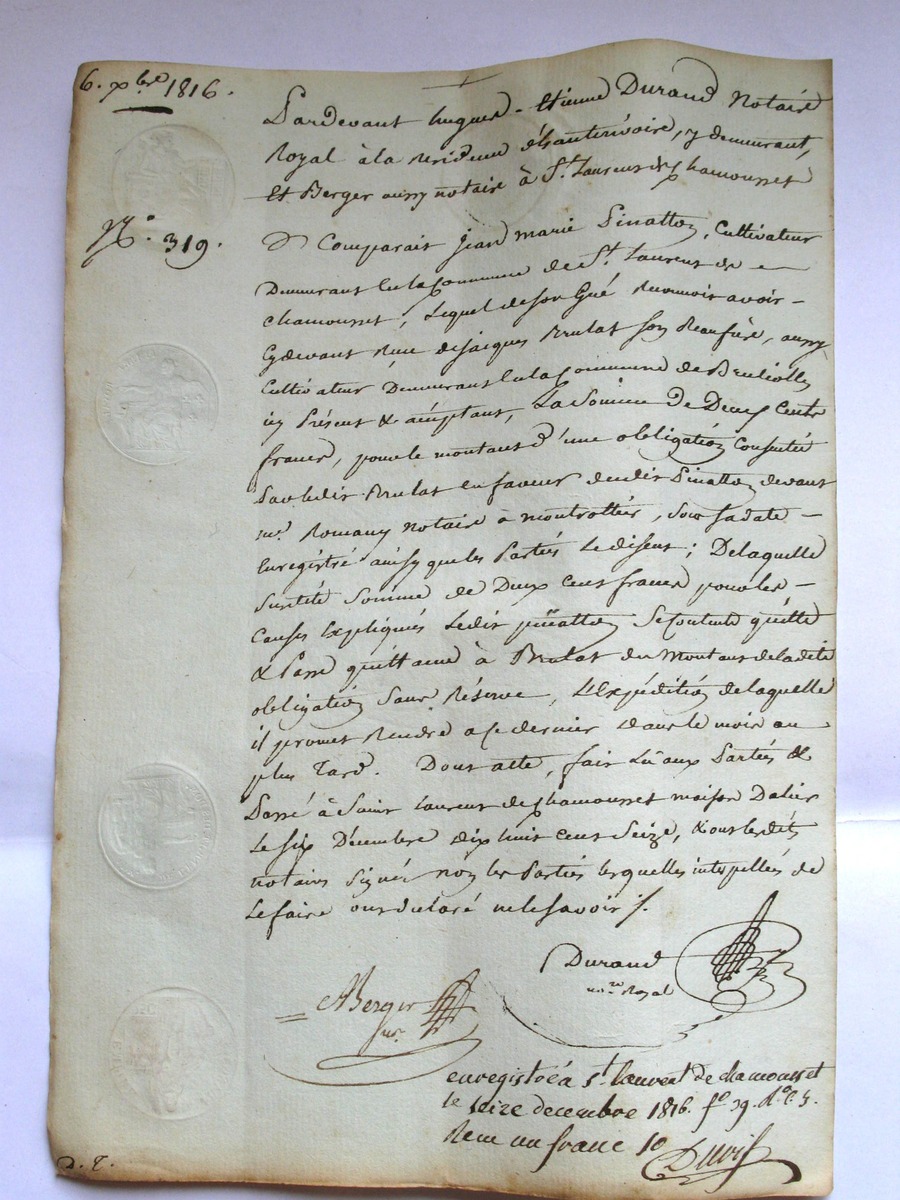 6. xbre 1816.
Pardevant hugues-Etienne Durand Notaire
Royal à la residence d'hauterivoire, y demeurant,
et Berger aussy notaire à St. Laurent de Chamousset
N°. 319.
Comparait Jean marie Pinatton, Cultivateur
Demeurant en la Commune de St. Laurent de
chamousset, lequel de son Gré Reconnoit avoir
Cydevant Reçu de jacques Brulat son Beaufrère, aussy
Cultivateur Demeurant en la Commune de
icy Présent & acceptant, La Somme de Deux Cents
francs, pour le montant d'une obligation Consentie
Par ledit Brulat en faveur dudit Pinatton devant
me. Romany notaire à montrottier, sous sa date
Enregistré ainsy que les Parties le disent; De laquelle
Susdite Somme de Deux cent francs pour les
Causes Expliqués Ledit pinatton Se Contente quitte
& Passe quittance à Brulat du Montant de ladite
obligation Sans Réserve, L'Expédition de laquelle
il promet Rendre a ce dernier dans le mois au
plus Tard. Dont acte, fait Lu aux Parties &
Passé à Saint Laurent de Chamousset maison
Le six Décembre dix huit cent Seize, & ont lesdits
notaires Signé non les Parties lesquelles interpellés de
Le faire ont déclaré ne le savoir ./.
Durand
nore Royal
Berger
nre.
enregistré à St. laurent de chamousset
le seize decembre 1816. fo 39.
Recu un franc 10